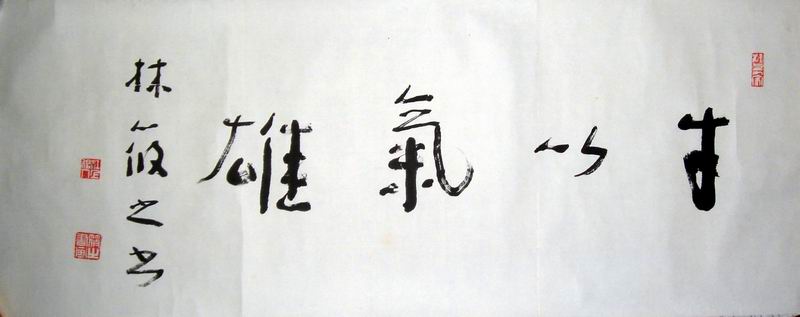 才以氣雄
林筱之书